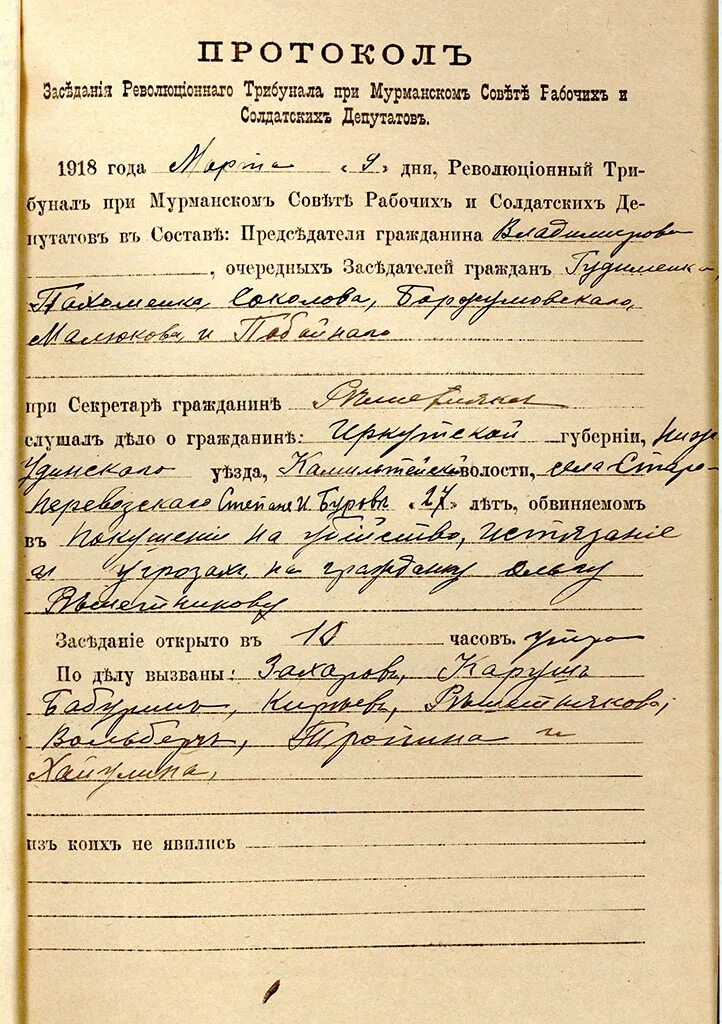 ПРОТОКОЛЪ
Засѣданія Революціоннаго Трибунала при Мурманскомъ Совѣтѣ Рабочихъ и
Солдатскихъ Депутатовъ.
1918 года Марта «9» дня, Революціонный Три-
буналъ при Мурманскомъ Совѣтѣ Рабочихъ и Солдатскихъ Де-
путатовъ въ Составѣ: Предсѣдателя гражданина Владимирова
, очередныхъ Засѣдателей гражданъ Гудименко,
Пахоменко, Соколова, Боржумовскаго,
Малюкова и Побойнаго
при Секретарѣ гражданинѣ
слушалъ дѣло о гражданинѣ: Иркутской губерніи, Нижне-
Удинскаго уѣзда, волости, села Старо-
Перевозскаго Степане И Буровъ «27» лѣтъ, обвиняемомъ
въ покушеніи на убійство, истязаніе
и угрозахъ на гражданку Ольгу
Рѣшетникову
Засѣданіе открыто въ 10 часовъ. утра
По дѣлу вызваны: Захаровъ, Карущъ
Бабуринъ, Рѣшетникова,
Вольбергъ, Тропина и
Хайулина,
изъ коихъ не явились